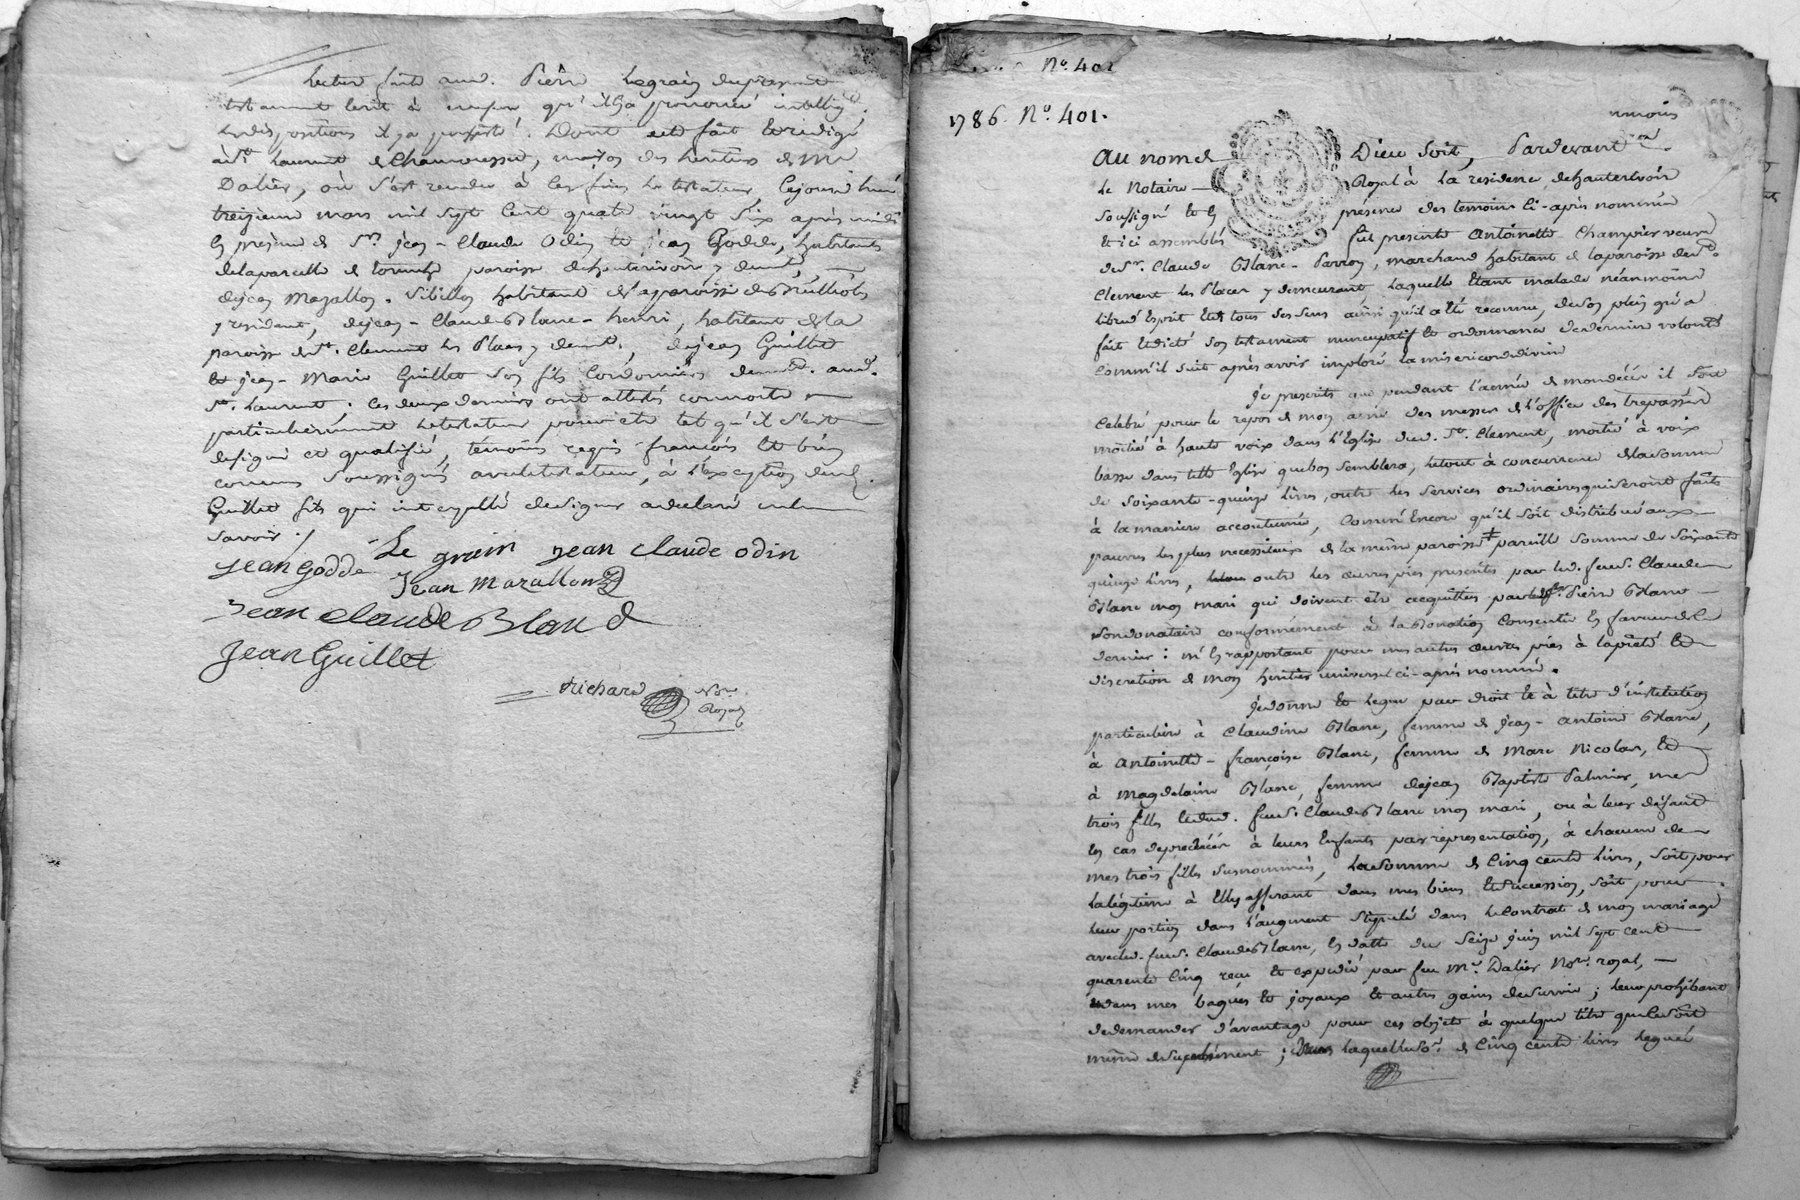 Lecture faite aud. Pierre Legrain du present
testament écrit à mesure qu'il l'a prononcé intelligib.t
ses dispositions il y a persisté. Dont acte fait et redigé
à St laurent de Chamousset, maison des heritiers de Me
Dalier, où s'est rendu à ces fins le testateur, cejourd'hui
treizieme mars mil sept cent quatre vingt six après midi
en presence de Sr. jean-Claude Odin et jean Godde, habitants
de la parcelle de paroisse d'hauterivoire y demt,
dejean Mazallon habitant de la paroisse des
y resident, dejean-Claude Blanc-henri, habitant de la
paroisse de St. Clement les Places y demt., dejean Guillet
et jean-Marie Guillet son fils Cordonniers demt. aud.
St. Laurent; ces deux derniers ont attesté connoitre
particulierement le testateur pour être tel qu'il s'est
designé et qualifié, témoins requis francois et bien
connus soussignés avec le testateur, à l'exception dud.
Guillet fils qui interpellé de signer a declaré ne le
savoir./.
Le grain jean claude odin
jean godde
Jean mazallon
Jean claude Blanc
Jean Guillet
Richard Nore
Royal
No. 401
1786. No. 401.
Au nom de Dieu soit, Pardevant
le Notaire Royal à la residence dehauterivoir
soussigné et en presence des temoins ci-après nommés
et ici assemblés fut presente Antoinette Champier veuve
de Sr. Claude Blanc-Perron, marchand habitant de la paroisse de St.
Clement les Places y demeurant, laquelle étant malade néanmoins
libre d'Esprit et de tous ses sens ainsi qu'il a été reconnu, de son plein gré a
fait et dicté son testament nuncupatif et ordonnance de derniere volonté
comm'il suit après avoir imploré la misericorde divine
je prescrits que pendant l'année de mon décés il soit
celebré pour le repos de mon ame des messes de l'office des trepassés
moitié à haute voix dans l'Eglise dud. St. Clement, moitié à voix
basse dans telle Eglise que bon semblera, le tout à concurrence de la somme
de soixante-quinze livres, outre les services ordinaires qui seront faits
à la maniere accoutumée, comm'Encore qu'il soit distribué aux
pauvres les plus necessiteux de la même paroisse pareille somme de soixante
quinze livres, outre les œuvres pies prescrites par led. feu S. Claude
Blanc mon mari qui doivent être acquittées par led. Sr. Pierre Blanc
son donataire conformément à la Donation consentie en faveur de ce
dernier: m'en rapportant pour mes autres œuvres pies à la pieté et
discretion de mon heritier universel ci-après nommé.
je donne et legue par droit et à titre d'institution
particuliere à Claudine Blanc, femme de jean-antoine Blanc,
à Antoinette-françoise Blanc, femme de Marc Nicolas, et
à Magdelaine Blanc, femme dejean Baptiste Palmier, mes
trois filles et dud. feu S. Claude Blanc mon mari, ou à leur défaut
en cas de predécés à leurs Enfants par representation, à chacune de
mes trois filles susnommées, la somme de Cinq cents livres, soit pour
la légitime à Elles afferant dans mes biens et succession, soit pour
leur portion dans l'augment stipulé dans le Contrat de mon mariage
avec led. feu S. Claude Blanc, en datte du seize juin mil sept cent
quarente cinq reçu et expedié par feu Me. Dalier Nore. royal,
dans mes bagues et joyaux et autres gains de survie; leur prohibant
de demander d'avantage pour ces objets à quelque titre que ce soit
même de suplément; laquelle so.e de Cinq cents livres leguée